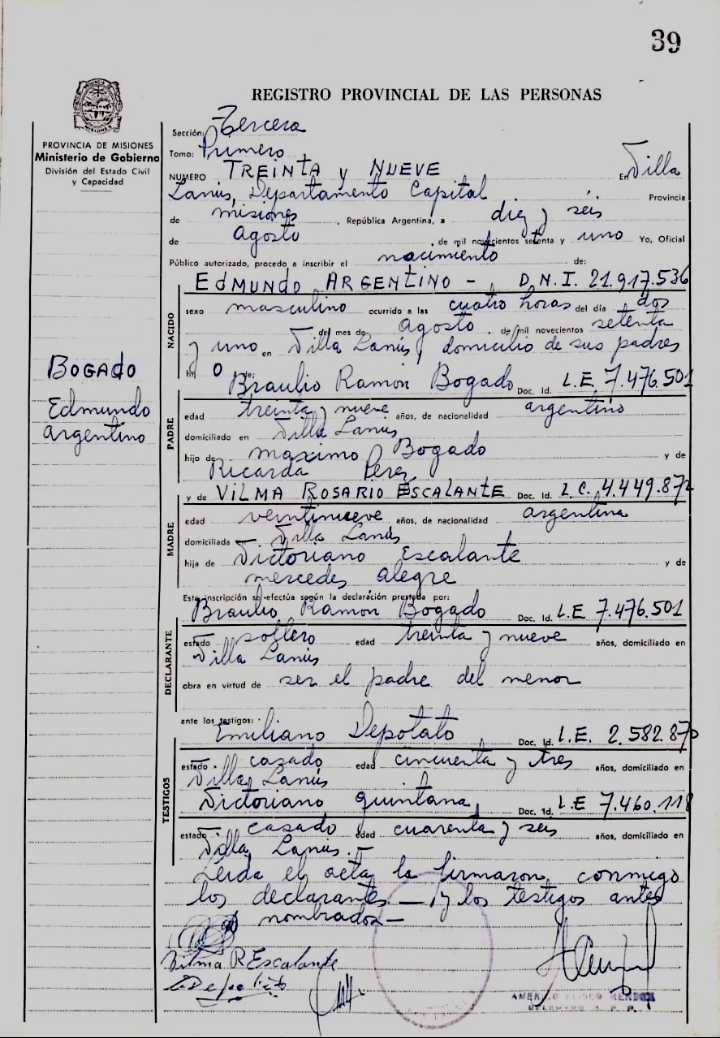 39
REGISTRO PROVINCIAL DE LAS PERSONAS
PROVINCIA DE MISIONES
Ministerio de Gobierno
División del Estado Civil
y Capacidad
BOGADO
Edmundo
argentino
Sección: Tercera
Tomo: Primero
NUMERO TREINTA y NUEVE En Villa
Lanús, Departamento Capital Provincia
de misiones, República Argentina, a diez y séis
de Agosto de mil novecientos setenta y uno Yo, Oficial
Público autorizado, procedo a inscribir el nacimiento de:
NACIDO
EDMUNDO ARGENTINO - D.N.I. 21.917.536
sexo masculino ocurrido a las cuatro horas del día dos
del mes de Agosto de mil novecientos setenta
y uno en Villa Lanús, domicilio de sus padres
de:
PADRE
Braulio Ramon Bogado Doc. Id. L.E. 7.476.501
edad treinta y nueve años, de nacionalidad argentino
domiciliado en Villa Lanus
hijo de maximo Bogado y de
Ricarda Perez
MADRE
y de VILMA ROSARIO ESCALANTE Doc. Id. L.C. 4.449.872
edad veintinueve años, de nacionalidad argentina
domiciliada Villa Lanús
hija de Victoriano Escalante y de
mercedes alegre
Esta inscripción se efectúa según la declaración prestada por:
DECLARANTE
Braulio Ramon Bogado Doc. Id. L.E 7.476.501
estado soltero edad treinta y nueve años, domiciliado en
Villa Lanús
obra en virtud de ser el padre del menor
ante los testigos:
TESTIGOS
Emiliano Depotato Doc. Id. L.E. 2.582.870
estado casado edad cincuenta y tres años, domiciliado en
Villa Lanús
Victoriano quintana, Doc. Id. L.E 7.460.118
estado casado edad cuarenta y seis años, domiciliado en
Villa Lanus.-
Leida el acta la firmaron conmigo
los declarantes — y los testigos antes
nombrados—
Vilma R Escalante